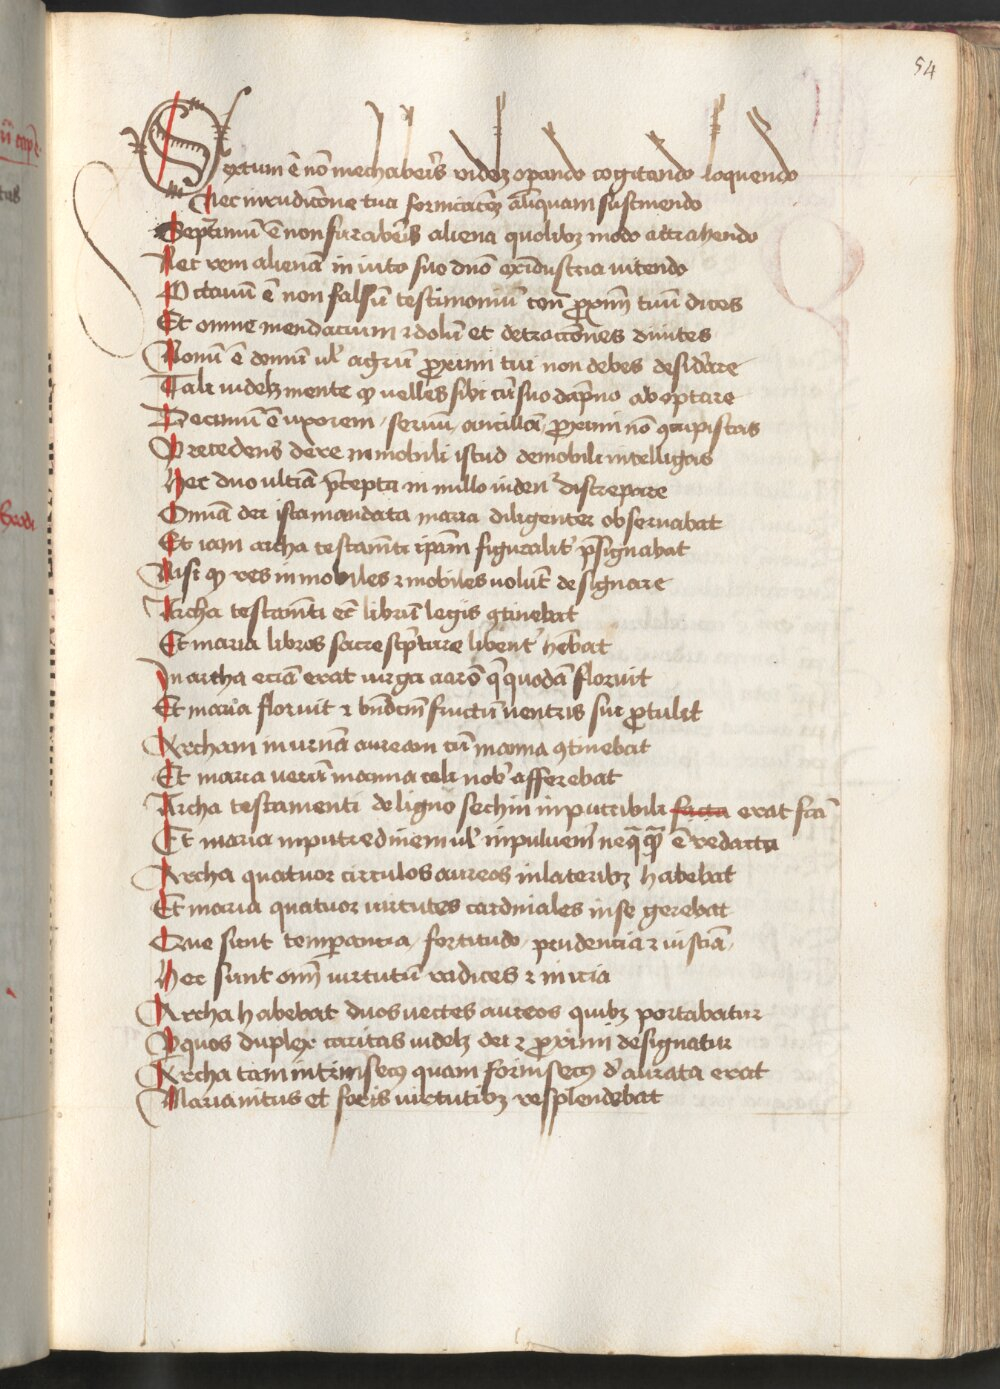 54
Sextum ē nō mechaberis videlꝫ opando cogitando loquendo
Nec in iudicōne tua fornicatōeꝫ aliquam sustinendo
Septimū ē non furaberis aliena quolibꝫ modo attrahendo
Nec rem alienā in iuito suo dnō ex industria utendo
Octauū ē non falsū testimoniū contͣ ꝓximū tuū dices
Et omne mendacium ⁊ dolū et detractōnes deuites
Nonū ē domū ul' agrū ꝓximi tui non debes desid'are
Tali uidelꝫ mente ꝙ velles sibi cū suo dāpno ab optare
Decimū ē uxorem / seruū / ancillā / ꝓximi nō ꝯcupiscas
Precedens de re inmobili istud de mobili intelligas
Hec duo ultīa p̄cepta in nullo uiden̄t discrepare
Nisi ꝙ res inmobiles ⁊ mobiles uolūt designare
Omīa dei ista mandata maria diligenter obseruabat
Et iam archa testam̄ti ip̄am figuralit' p̄signabat
Archa testam̄ti et̄ librū legis ꝯtinebat
Et maria libros sacre sc̄pture libent' hēbat
In archa eciā erat uirga aarō q̄ quodā floruit
Et maria floruit ⁊ bn̄dc̄m fructū uentris sui ꝓtulit
Archa in urnā auream cū manna ꝯtinebat
Et maria uerū manna celi nob' afferebat
Archa testamenti de ligno sechin inputribili facta erat fc̄a
Et maria in putredinem ul' in puluerē neq̄q̄ ē redacta
Archa quatuor circulos aureos in lateribꝫ habebat
Et maria quatuor uirtutes cardinales in se gerebat
Que sunt temperancia / fortitudo / prudencia ⁊ iusticia
Hec sunt oīm uirtutū radices ⁊ inicia
Archa habebat duos uectes aureos quibꝫ portabatur
Per quos duplex caritas uidelꝫ dei ⁊ ꝓximi designatur
Archa tam intrinsecꝰ quam forinsecꝰ d'aurata erat
Maria intus et foris uirtutibꝫ resplendebat